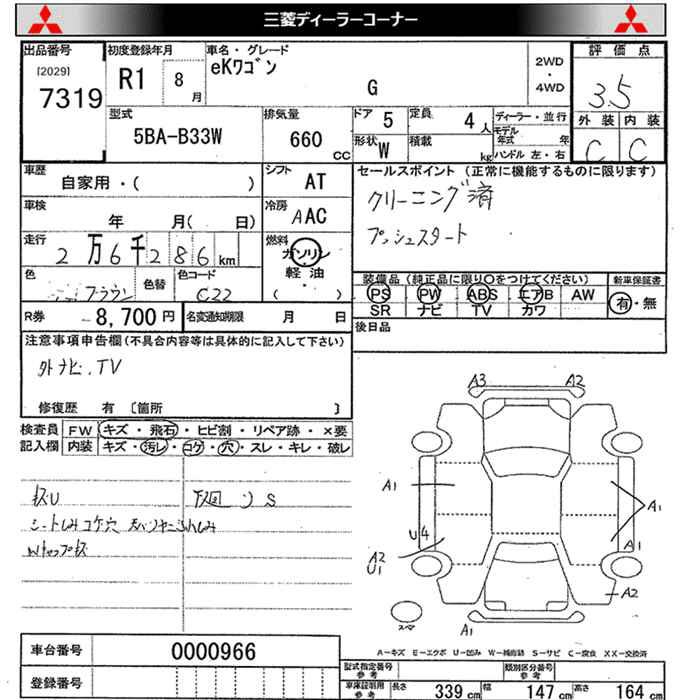 三菱ディーラーコーナー
出品番号
[2029]
7319
初度登録年月
R1 8 月
車名・グレード
eKワゴン
G
2WD
・
4WD
評価点
3.5
外装 内装
C C
型式
5BA-B33W
排気量
660 CC
ドア 5
定員 4 人
形状 W
積載 kg
ディーラー・並行
モデル年式 年
ハンドル 左・右
車歴
自家用・( )
シフト AT
車検
年 月( 日)
冷房 AAC
走行
2 万 6 千 2 8 6 km
燃料
ガソリン
・
軽油
( )
色
ブラウン
色替
色コード
C22
R券 8,700 円
名変通知期限 月 日
セールスポイント (正常に機能するものに限ります)
クリーニング済
プッシュスタート
装備品 (純正品に限り○をつけてください)
PS PW ABS エアB AW
SR ナビ TV カワ
新車保証書
有・無
後日品
注意事項申告欄(不具合内容等は具体的に記入して下さい)
外ナビ.TV
修復歴 有 〔箇所 〕
検査員記入欄
FW キズ・飛石・ヒビ割・リペア跡・×要
内装 キズ・汚レ・コゲ・穴・スレ・キレ・破レ
下廻 S
シートしみコゲ穴
A3 A2
A1
A1
U4
A1
A2
U1
A2
A1
スペア
A-キズ E-エクボ U-凹み W-補修跡 S-サビ C-腐食 XX-交換済
車台番号 0000966
登録番号
型式指定番号 参考
類別区分番号 参考
車庫証明用 参考
長さ 339 cm
幅 147 cm
高さ 164 cm